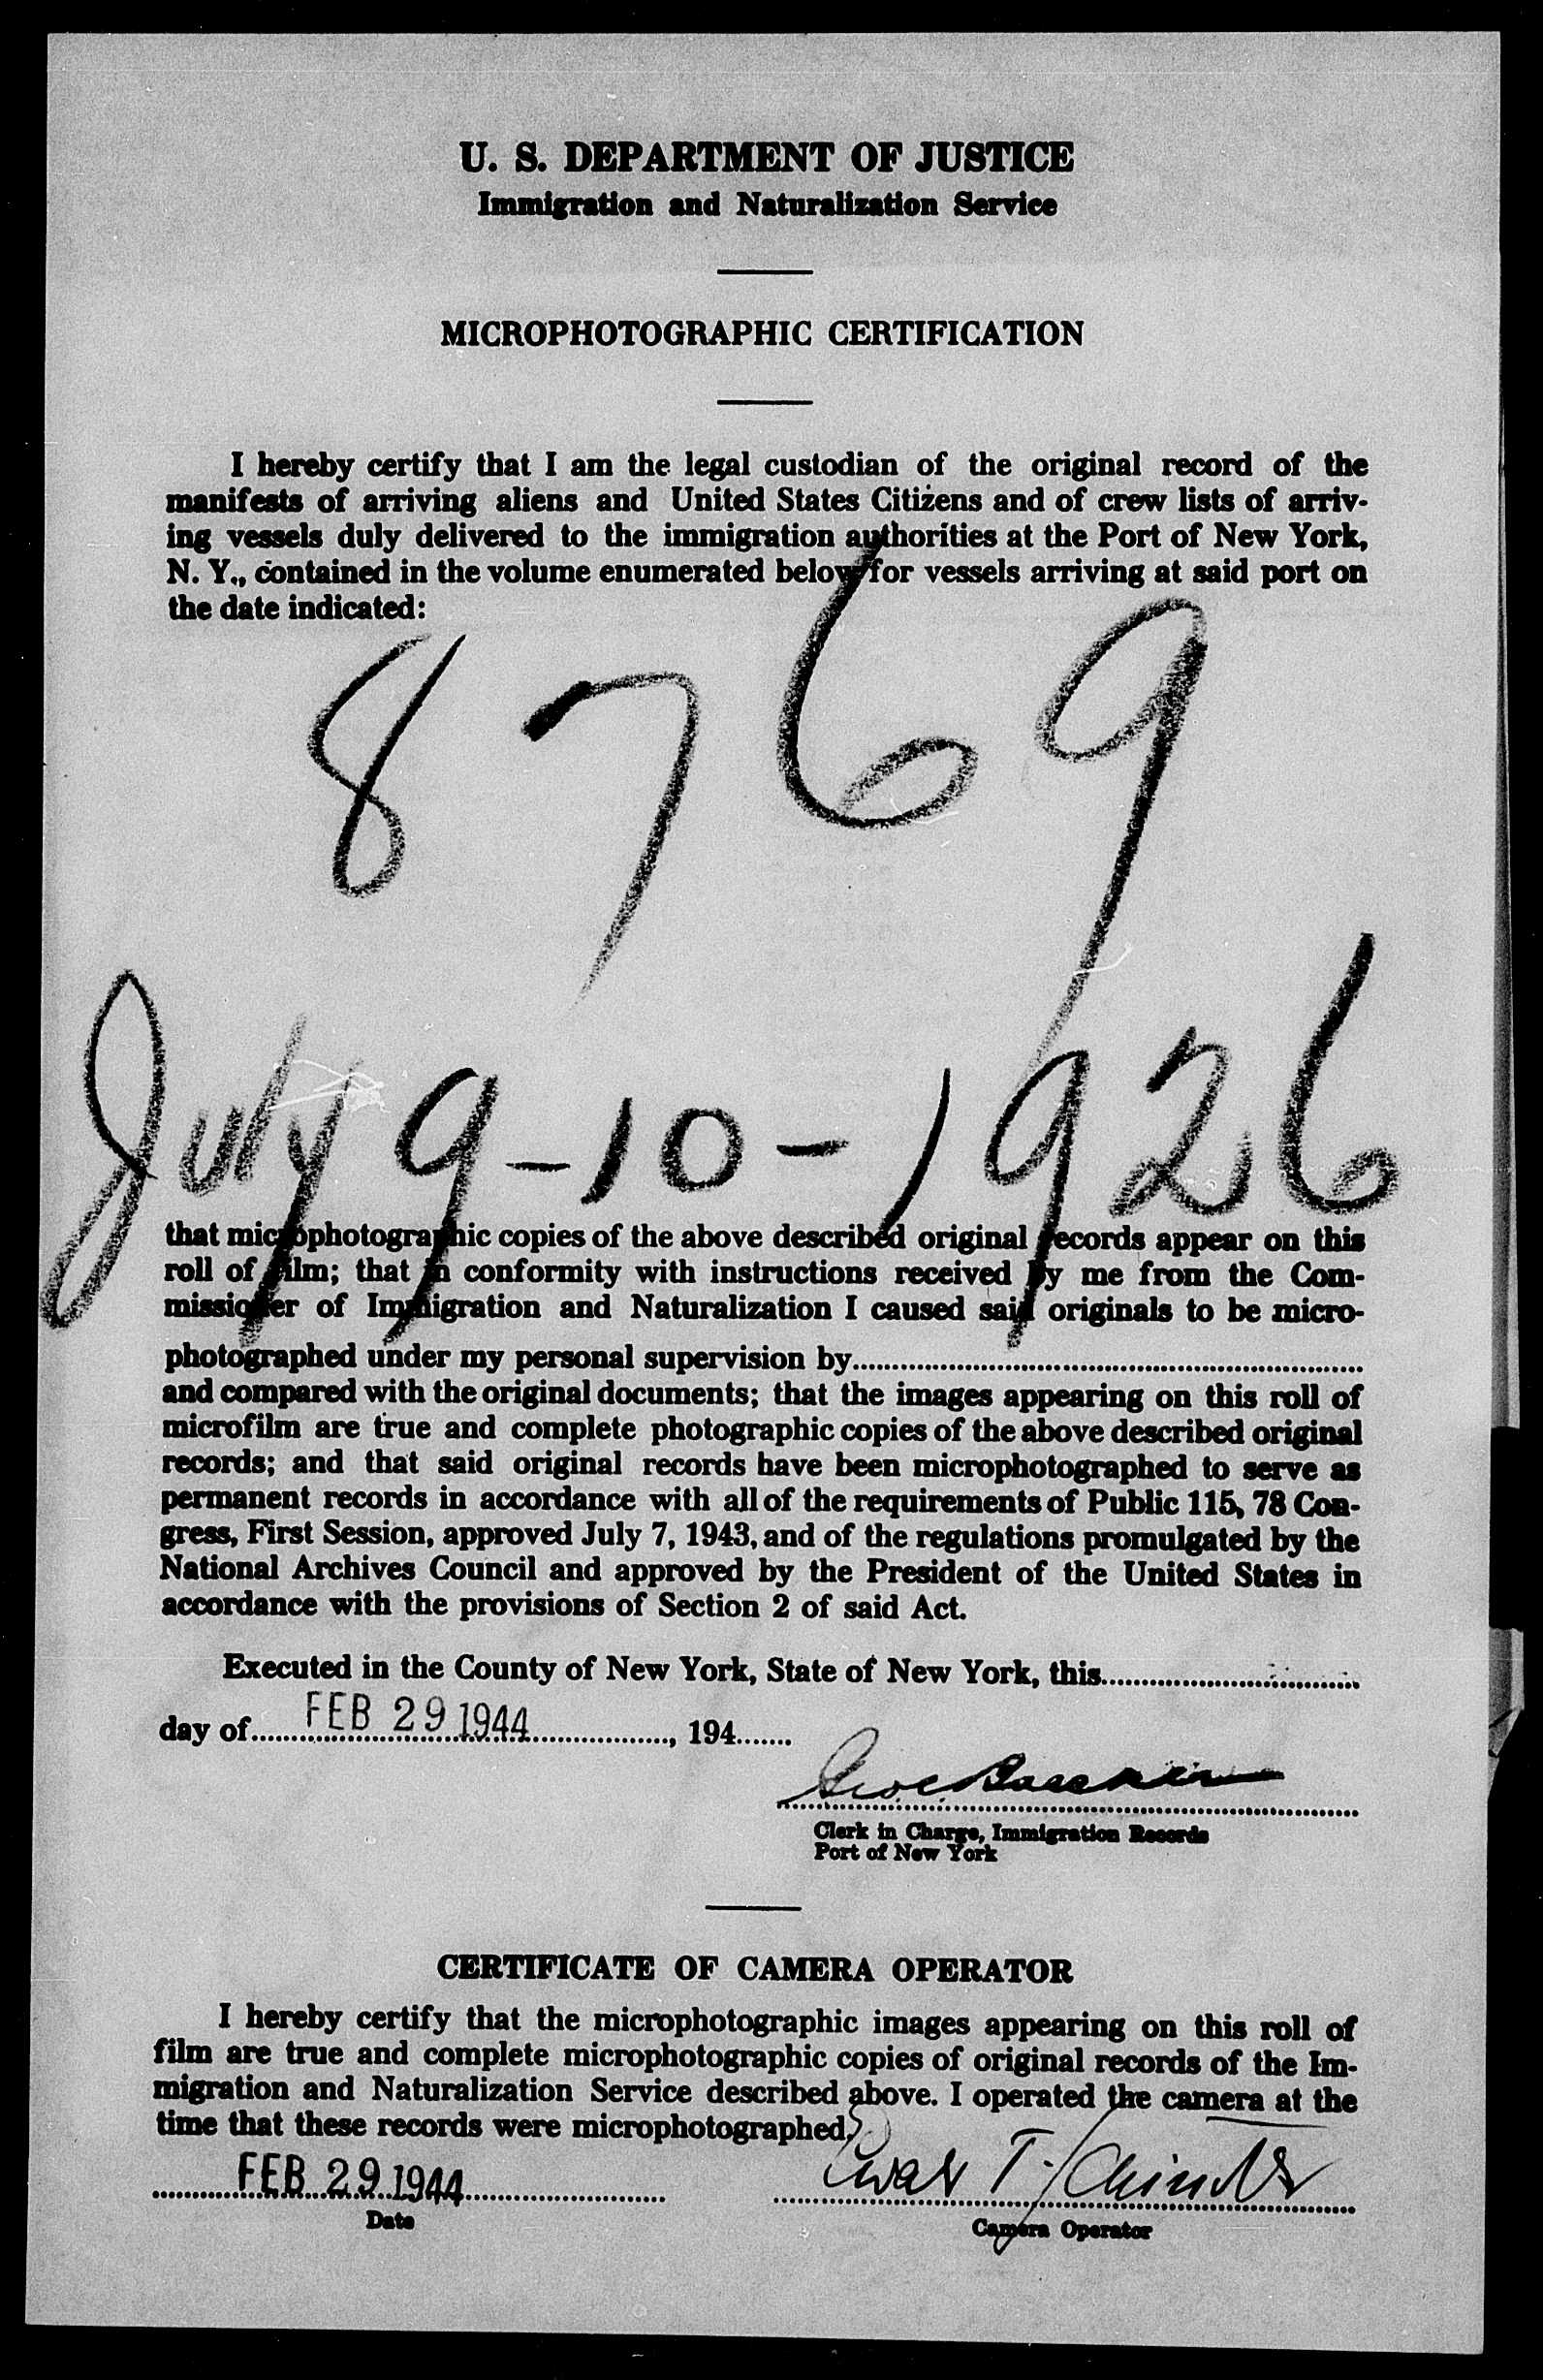 U. S. DEPARTMENT OF JUSTICE
Immigration and Naturalization Service
MICROPHOTOGRAPHIC CERTIFICATION
I hereby certify that I am the legal custodian of the original record of the
manifests of arriving aliens and United States Citizens and of crew lists of arriv-
ing vessels duly delivered to the immigration authorities at the Port of New York,
N. Y., contained in the volume enumerated below for vessels arriving at said port on
the date indicated:
8769
July 9-10-1926
that microphotographic copies of the above described original records appear on this
roll of film; that in conformity with instructions received by me from the Com-
missioner of Immigration and Naturalization I caused said originals to be micro-
photographed under my personal supervision by
and compared with the original documents; that the images appearing on this roll of
microfilm are true and complete photographic copies of the above described original
records; and that said original records have been microphotographed to serve as
permanent records in accordance with all of the requirements of Public 115, 78 Con-
gress, First Session, approved July 7, 1943, and of the regulations promulgated by the
National Archives Council and approved by the President of the United States in
accordance with the provisions of Section 2 of said Act.
Executed in the County of New York, State of New York, this
day of FEB 29 1944, 194
Clerk in Charge, Immigration Records
Port of New York
CERTIFICATE OF CAMERA OPERATOR
I hereby certify that the microphotographic images appearing on this roll of
film are true and complete microphotographic copies of original records of the Im-
migration and Naturalization Service described above. I operated the camera at the
time that these records were microphotographed.
FEB 29 1944 T.
Date
Camera Operator